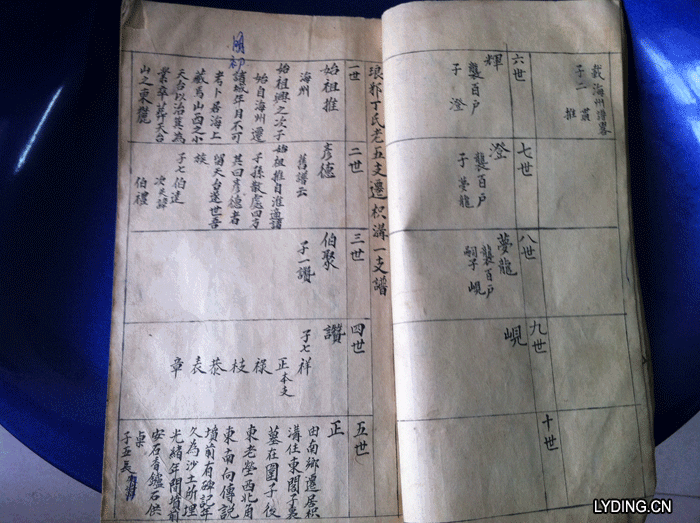 載海州譜畧
子二 晨
推
六世
輝
襲百戶
子 澄
七世
澄
襲百戶
子 夢龍
八世
夢龍
襲百戶
嗣子 峴
九世
峴
十世
琅邪丁氏老五支遷枳溝一支譜
一世
始祖推
海州
始祖興之次子
始自海州遷
諸城年月不可
考卜居海上
藏馬山西之小
天台以治農為
業卒葬天台
山之東麓
明初
二世
彥德
舊譜云
始祖推自淮適諸
子孫散處四方
其曰彥德者
留天台遂世吾
族
子七伯達
次失諱
伯禮
三世
伯聚
子一讚
四世
讚
子七 祥
正本支
禄
枝
恭
表
章
五世
正
由南鄉遷居枳
溝住東關子裏
墓在圍子後
東老塋西北角
東南向傳說
墳前有碑記年
久為沙土所埋
光緒年間墳前
安石香鑪石供
桌
子五
LYDING.CN